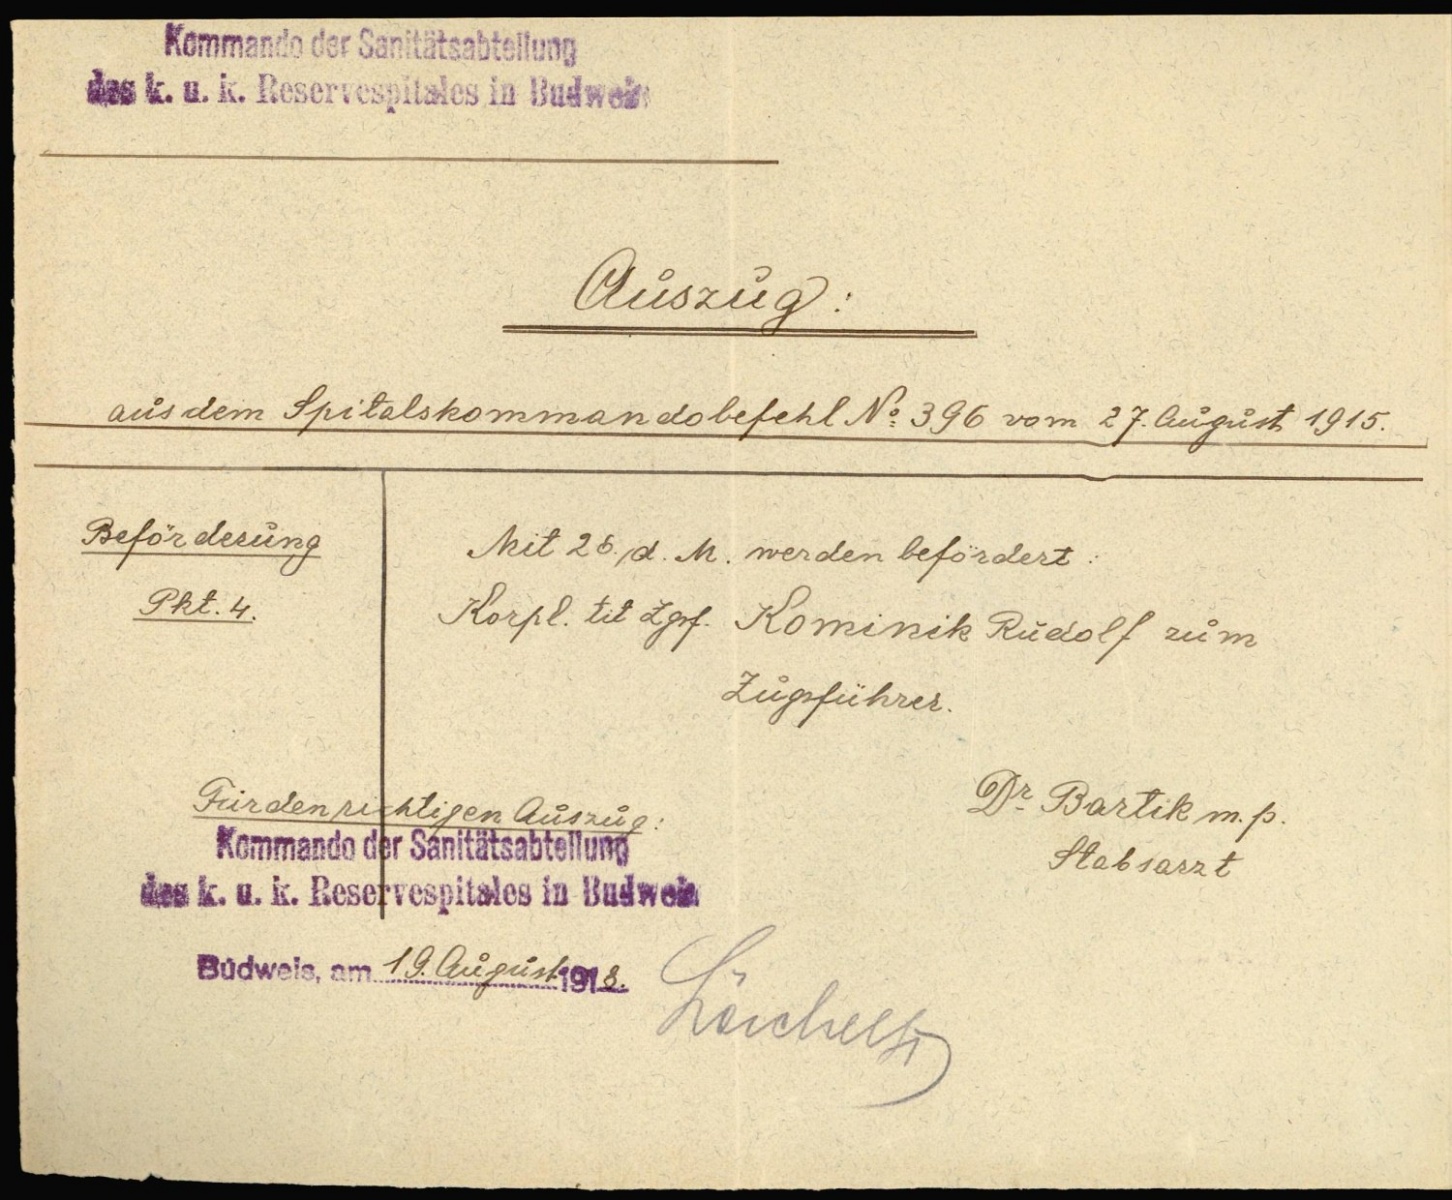 Kommando der Sanitätsabteilung
des k. u. k. Reservespitales in Budweis
Auszug:
aus dem Spitalskommandobefehl No 396 vom 27. August 1915.
Beförderung
Pkt. 4.
Mit 26. d. M. werden befördert:
Korpl. tit Zgsf. Kominik Rudolf zum
Zugsführer.
Dr Bartik m. p.
Stabsarzt
Für den richtigen Auszug:
Kommando der Sanitätsabteilung
des k. u. k. Reservespitales in Budweis
Budweis, am 19. August 1918.